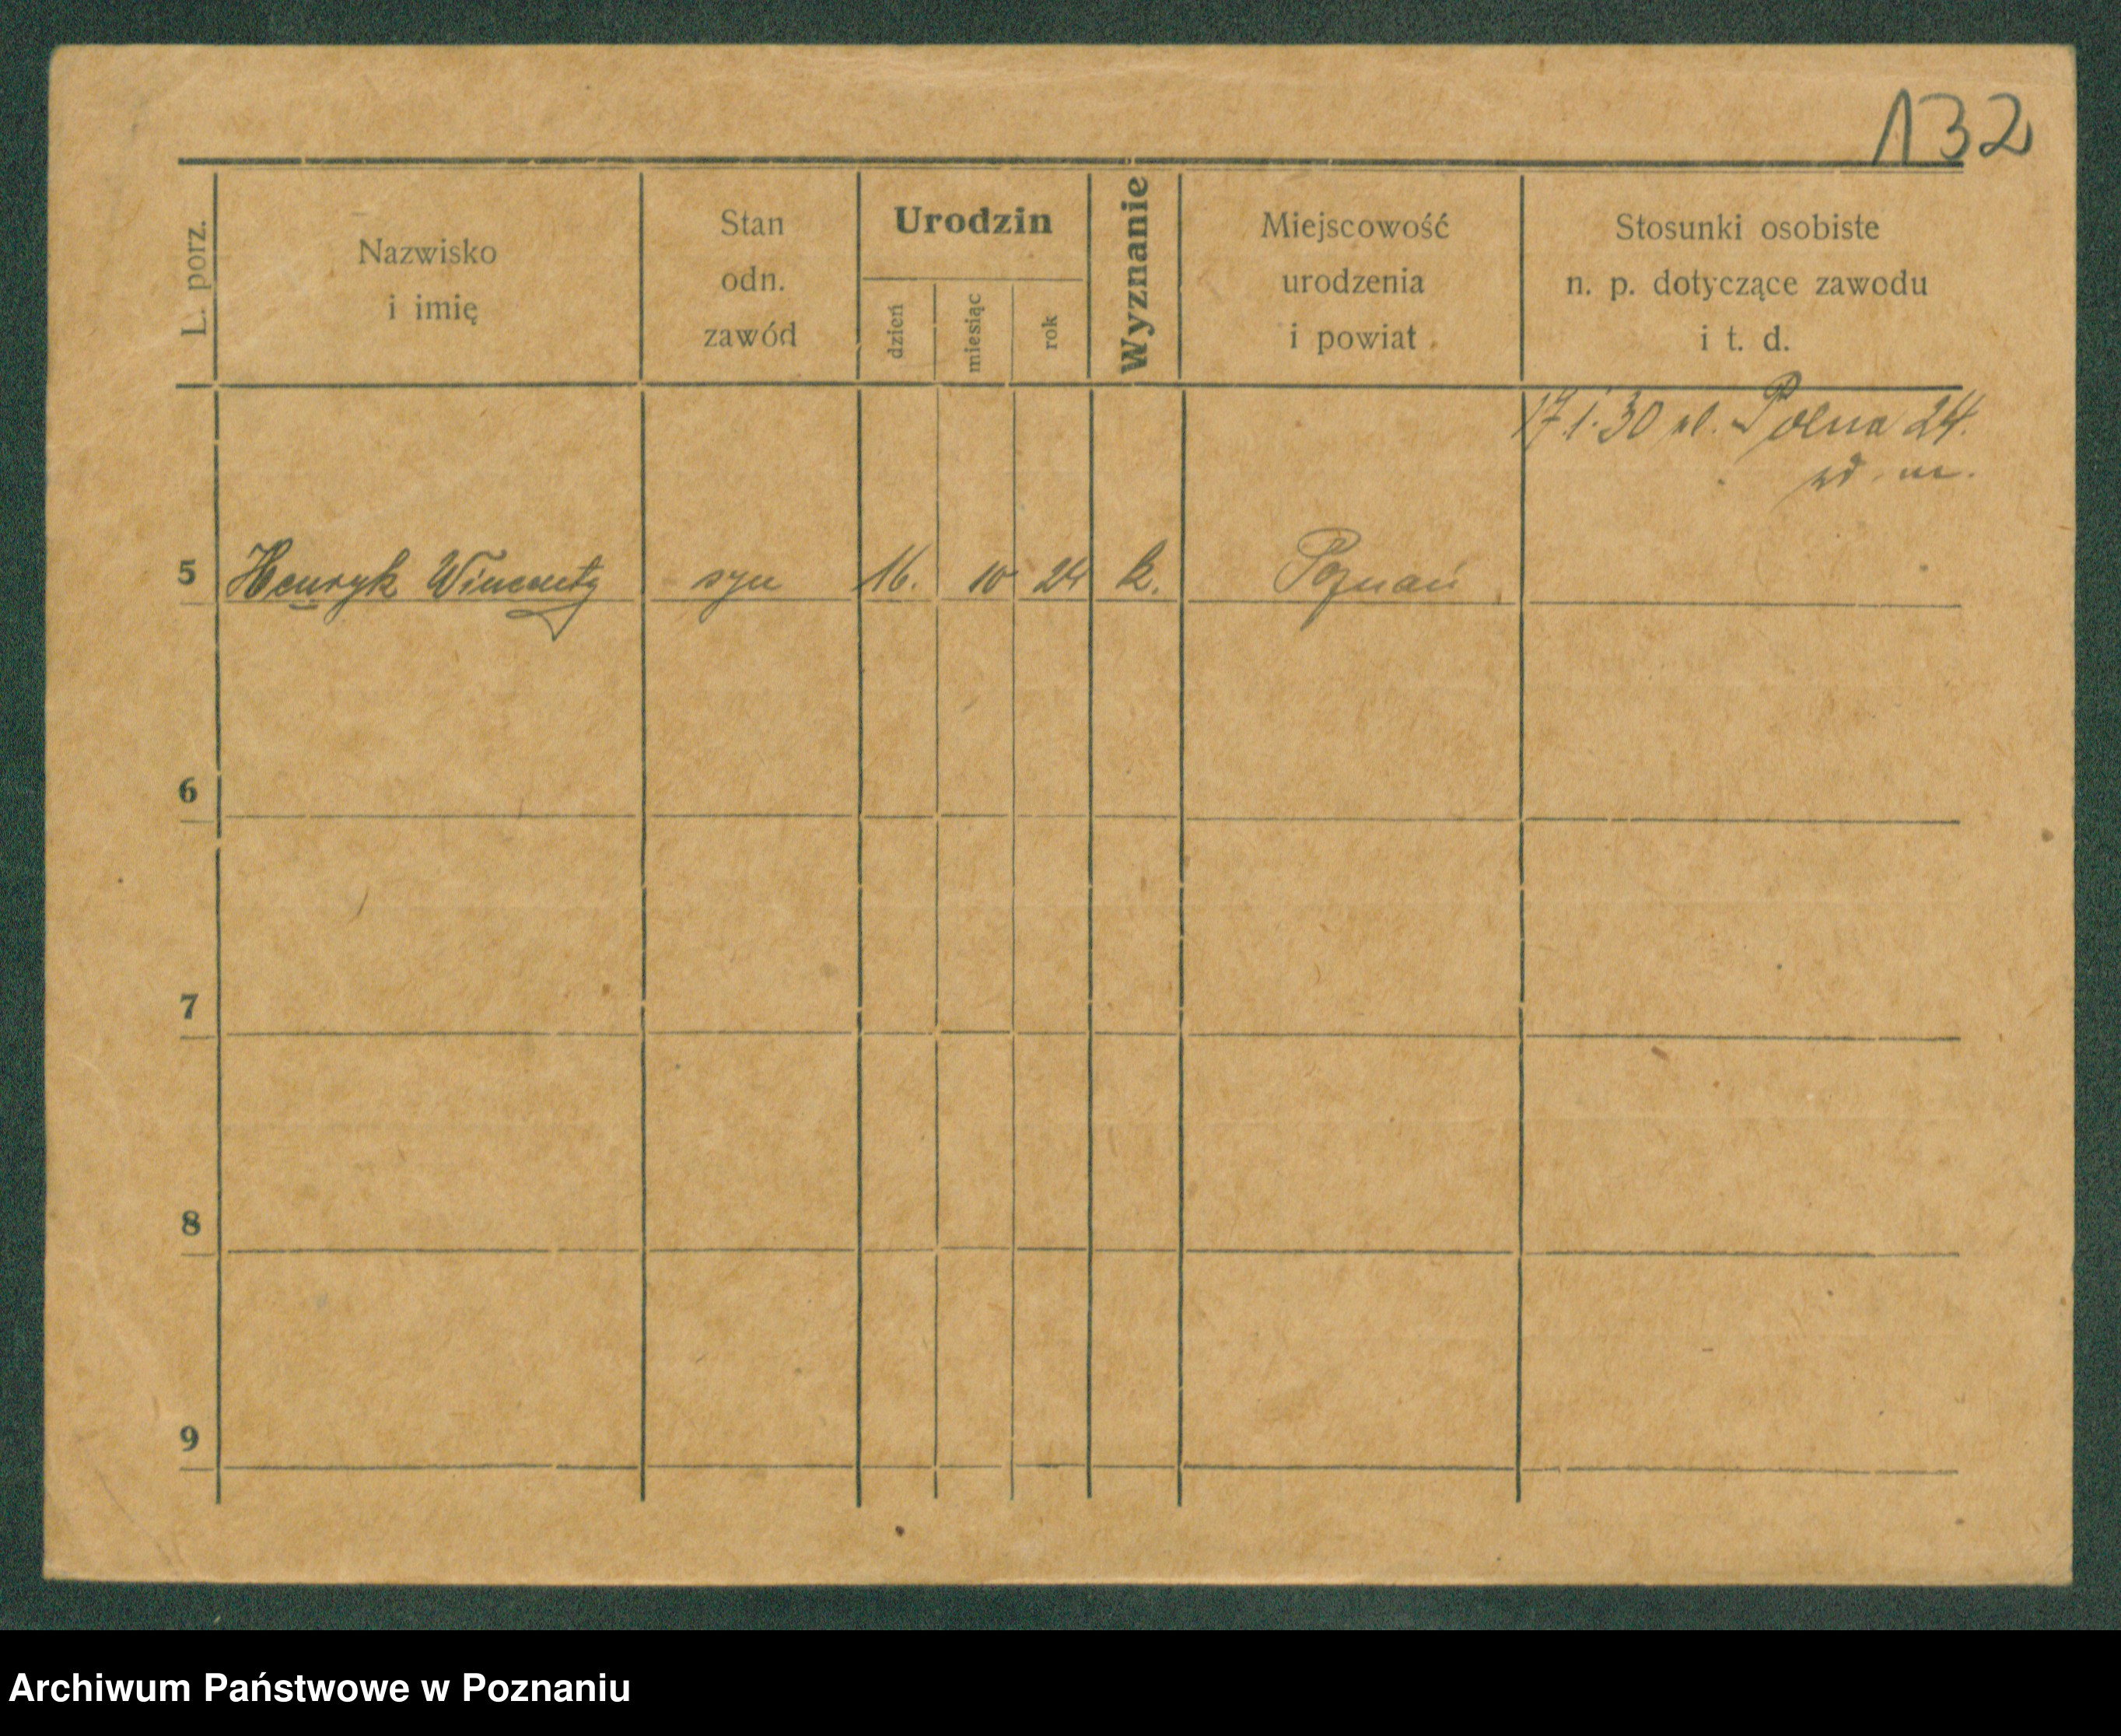 132
L. porz.
Nazwisko
i imię
Stan
odn.
zawód
Urodzin
dzień
miesiąc
rok
Wyznanie
Miejscowość
urodzenia
i powiat
Stosunki osobiste
n. p. dotyczące zawodu
i t. d.
17.1.30 ul. Polna 24.
5 Henryk Wincenty syn 16. 10 24 k. Poznań
6
7
8
9
Archiwum Państwowe w Poznaniu